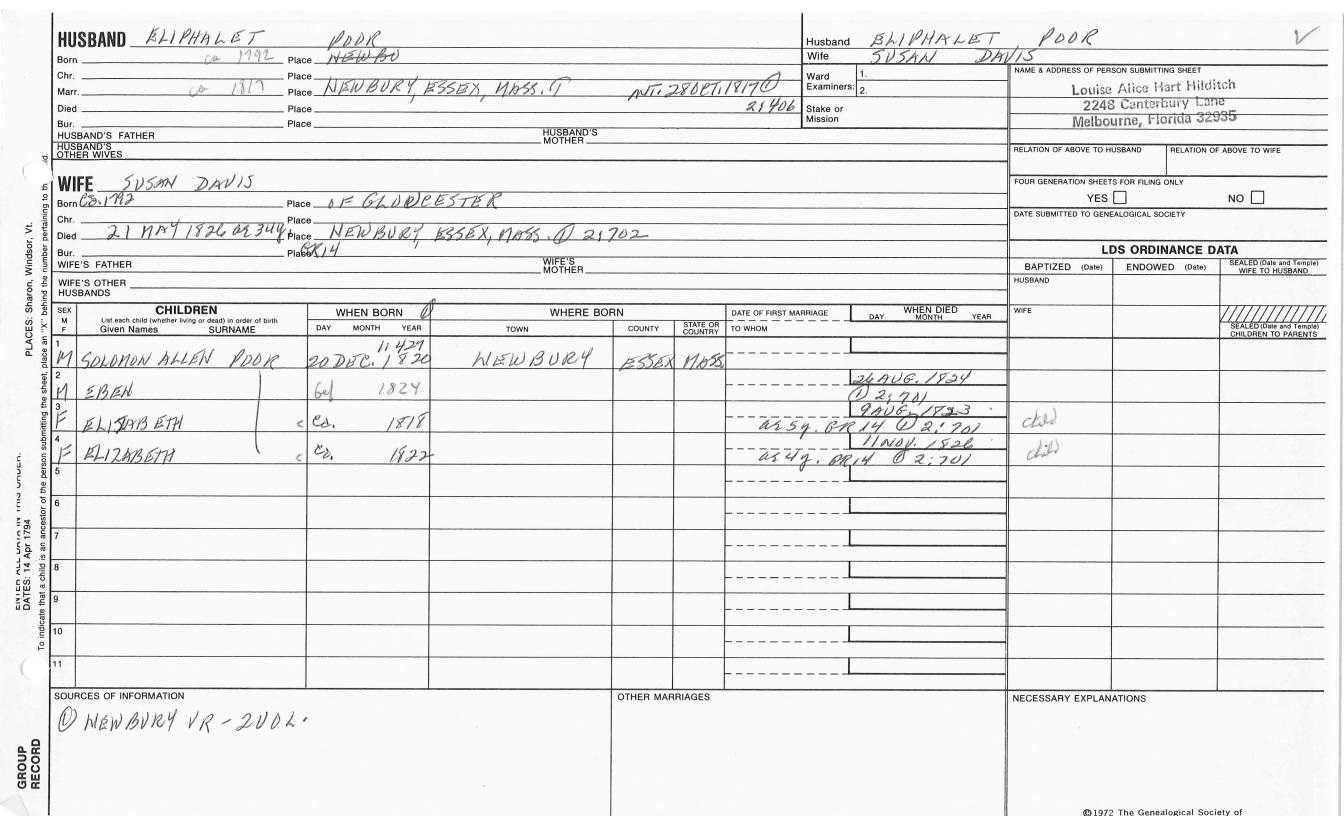 HUSBAND ELIPHALET POOR
Born ca 1792 Place NEWBO
Chr. Place
Marr. ca 1817 Place NEWBURY, ESSEX, MASS. ANT. 28 OCT. 1817 ①
Died Place 2:406
Bur. Place
HUSBAND'S FATHER HUSBAND'S MOTHER
HUSBAND'S OTHER WIVES
Husband ELIPHALET POOR
Wife SUSAN DAVIS
Ward Examiners: 1.
2.
Stake or Mission
NAME & ADDRESS OF PERSON SUBMITTING SHEET
Louise Alice Hart Hilditch
2248 Canterbury Lane
Melbourne, Florida 32935
RELATION OF ABOVE TO HUSBAND RELATION OF ABOVE TO WIFE
FOUR GENERATION SHEETS FOR FILING ONLY
YES NO
DATE SUBMITTED TO GENEALOGICAL SOCIETY
WIFE SUSAN DAVIS
Born Ca. 1792 Place OF GLOUCESTER
Chr. Place
Died 21 MAY 1826 ae 34y. Place NEWBURY, ESSEX, MASS. ① 2:702
Bur. Place GR14
WIFE'S FATHER WIFE'S MOTHER
WIFE'S OTHER HUSBANDS
LDS ORDINANCE DATA
BAPTIZED (Date) ENDOWED (Date) SEALED (Date and Temple) WIFE TO HUSBAND
HUSBAND
WIFE
SEALED (Date and Temple) CHILDREN TO PARENTS
SEX M F
CHILDREN
List each child (whether living or dead) in order of birth
Given Names SURNAME
WHEN BORN ①
DAY MONTH YEAR
WHERE BORN
TOWN COUNTY STATE OR COUNTRY
DATE OF FIRST MARRIAGE
TO WHOM
WHEN DIED
DAY MONTH YEAR
1 1:427
M SOLOMON ALLEN POOR 20 DEC. 1820 NEWBURY ESSEX MASS
2 26 AUG. 1824
M EBEN bef 1824 ① 2:701
3 9 AUG. 1823
F ELIZABETH c Ca. 1818 ae 5y. GR14 ① 2:701 child
4 11 NOV. 1826
F ELIZABETH c Ca. 1822 ae 4y. GR14 ① 2:701 child
5
6
7
8
9
10
11
SOURCES OF INFORMATION
① NEWBURY VR - 2 VOL.
OTHER MARRIAGES
NECESSARY EXPLANATIONS
©1972 The Genealogical Society of
GROUP RECORD
DATES: 14 Apr 1794
PLACES: Sharon, Windsor, Vt.
To indicate that a child is an ancestor of the person submitting the sheet, place an "X" behind the number pertaining to th d.